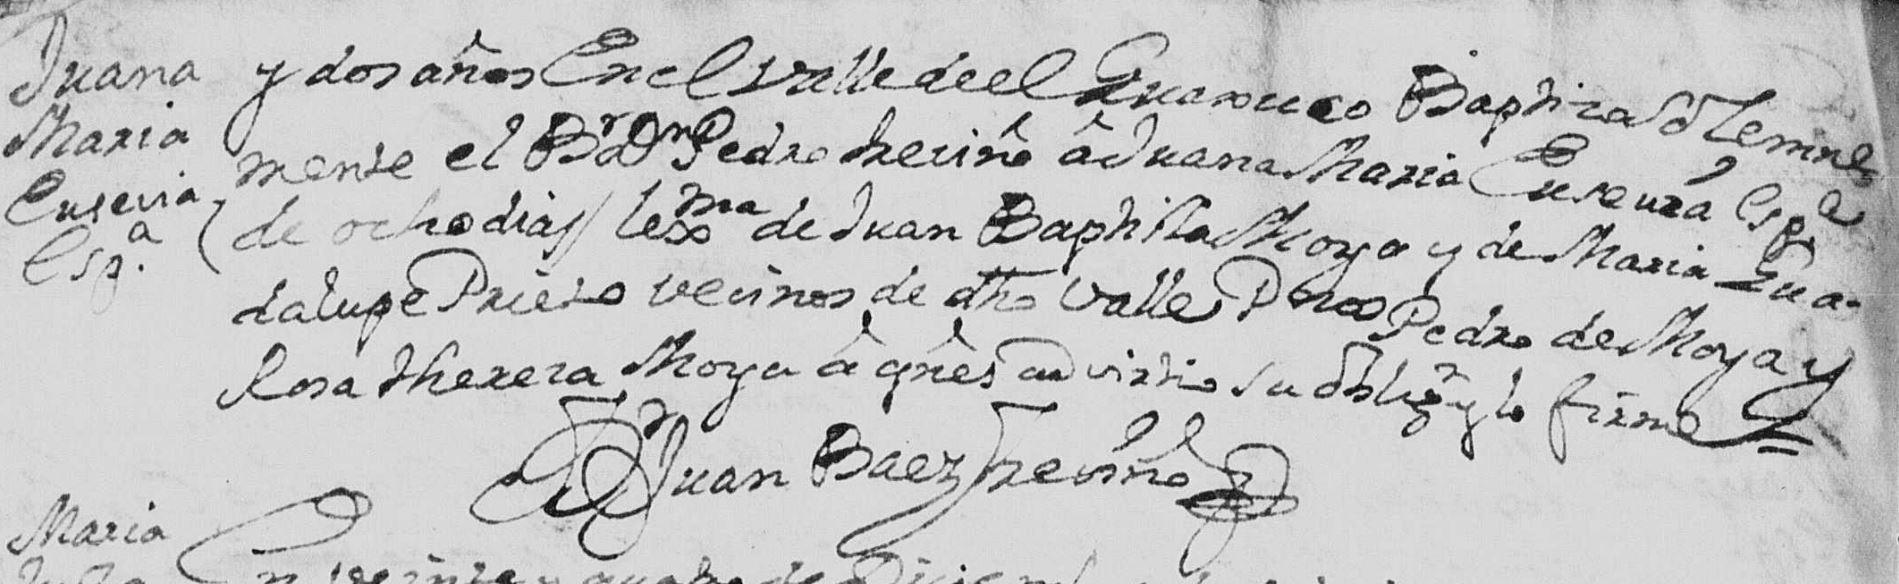 Juana
Maria
Eusevia
Esp.a
y dos años En el valle de el Guaxuco Baptizó Solemne
mente el Br Dn Pedro treviño â Juana Maria Eusevia Espa
de ocho dias lexma de Juan Baphta Moya y de Maria Gua-
dalupe Prieto vecinos de dho Valle Pnos Pedro de Moya y
Rosa therera Moya â qnes advirtio su oblign y lo firme
Dn Juan Baez treviño
Maria
En veinte y quatro de Diciem